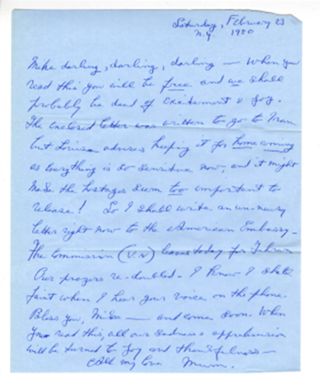 Saturday, February 23
N.Y. 1980
darling, darling, darling — When you
read this you will be free and we shall
probably be dead of excitement & joy.
The enclosed letter was written to go to Iran
but Louisa advises keeping it for homecoming
as everything is so sensitive now, and it might
make the hostages seem too important to
release! So I shall write an
letter right now to the American Embassy —
The Commission (U.N) leaves today for Tehran
Our prayers re-doubled — I know I shall
faint when I hear your voice on the phone.
Bless you, — and come soon. When
you read this, all our sadness & apprehension
will be turned to joy and thankfulness —
All my love Mum.